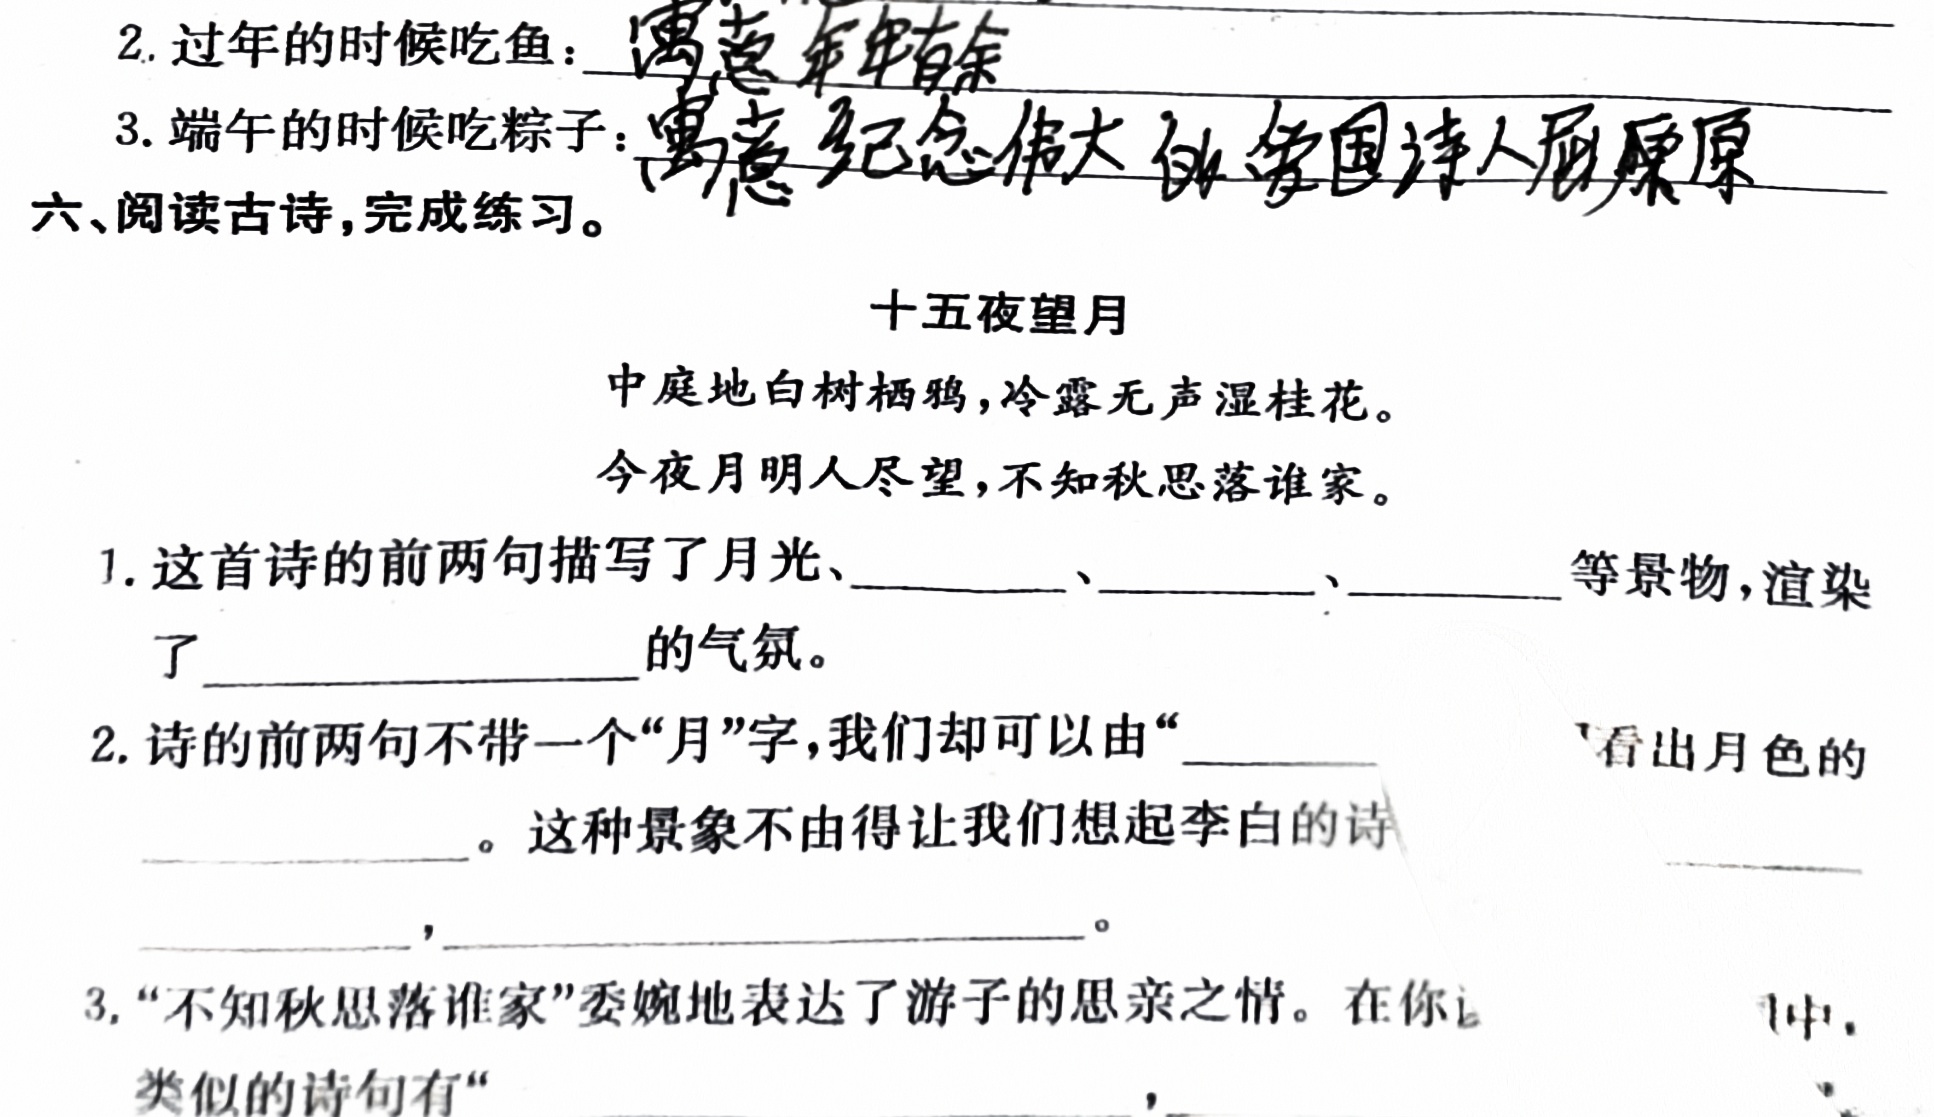 2. 过年的时候吃鱼：寓意年年有余
3. 端午的时候吃粽子：寓意纪念伟大的爱国诗人屈原
六、阅读古诗，完成练习。
十五夜望月
中庭地白树栖鸦，冷露无声湿桂花。
今夜月明人尽望，不知秋思落谁家。
1. 这首诗的前两句描写了月光、______、______、______等景物，渲染
了____________的气氛。
2. 诗的前两句不带一个“月”字，我们却可以由“______看出月色的
________。这种景象不由得让我们想起李白的诗______
________，________________。
3. “不知秋思落谁家”委婉地表达了游子的思亲之情。在你 中，
类似的诗句有“____________，______